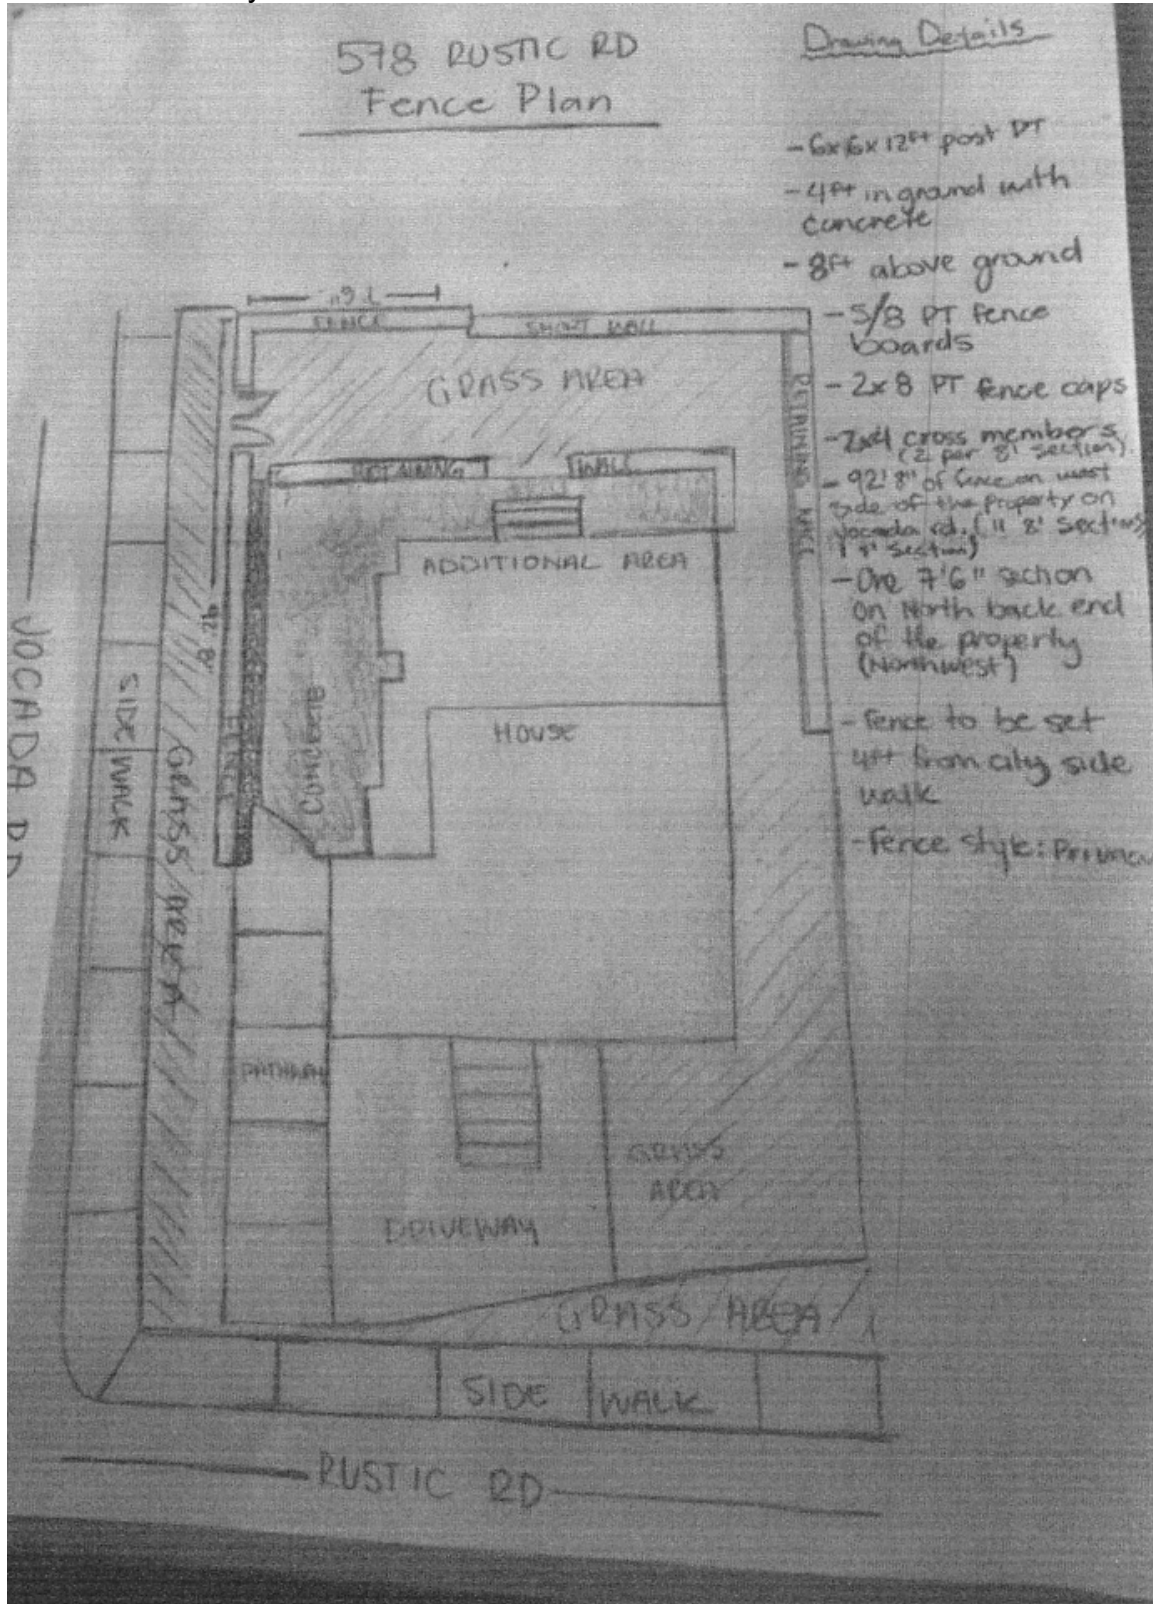 578 RUSTIC RD
Fence Plan
Drawing Details
- 6x6x12ft post PT
- 4ft in ground with
concrete
- 8ft above ground
- 5/8 PT fence
boards
- 2x8 PT fence caps
- 2x4 cross members
(2 per 8' section).
- 92'8" of fence on west
side of the property on
Jocada rd. (11 8' sections
section)
- One 7'6" section
on North back end
of the property
(Northwest)
- Fence to be set
4ft from city side
walk
- Fence style:
7'6"
FENCE
SHORT WALL
GRASS AREA
RETAINING WALL
RETAINING
WALL
ADDITIONAL AREA
92' 8"
FENCE
CONCRETE
HOUSE
JOCADA RD
SIDE WALK
GRASS AREA
PATHWAY
GRASS
AREA
DRIVEWAY
GRASS AREA
SIDE WALK
RUSTIC RD